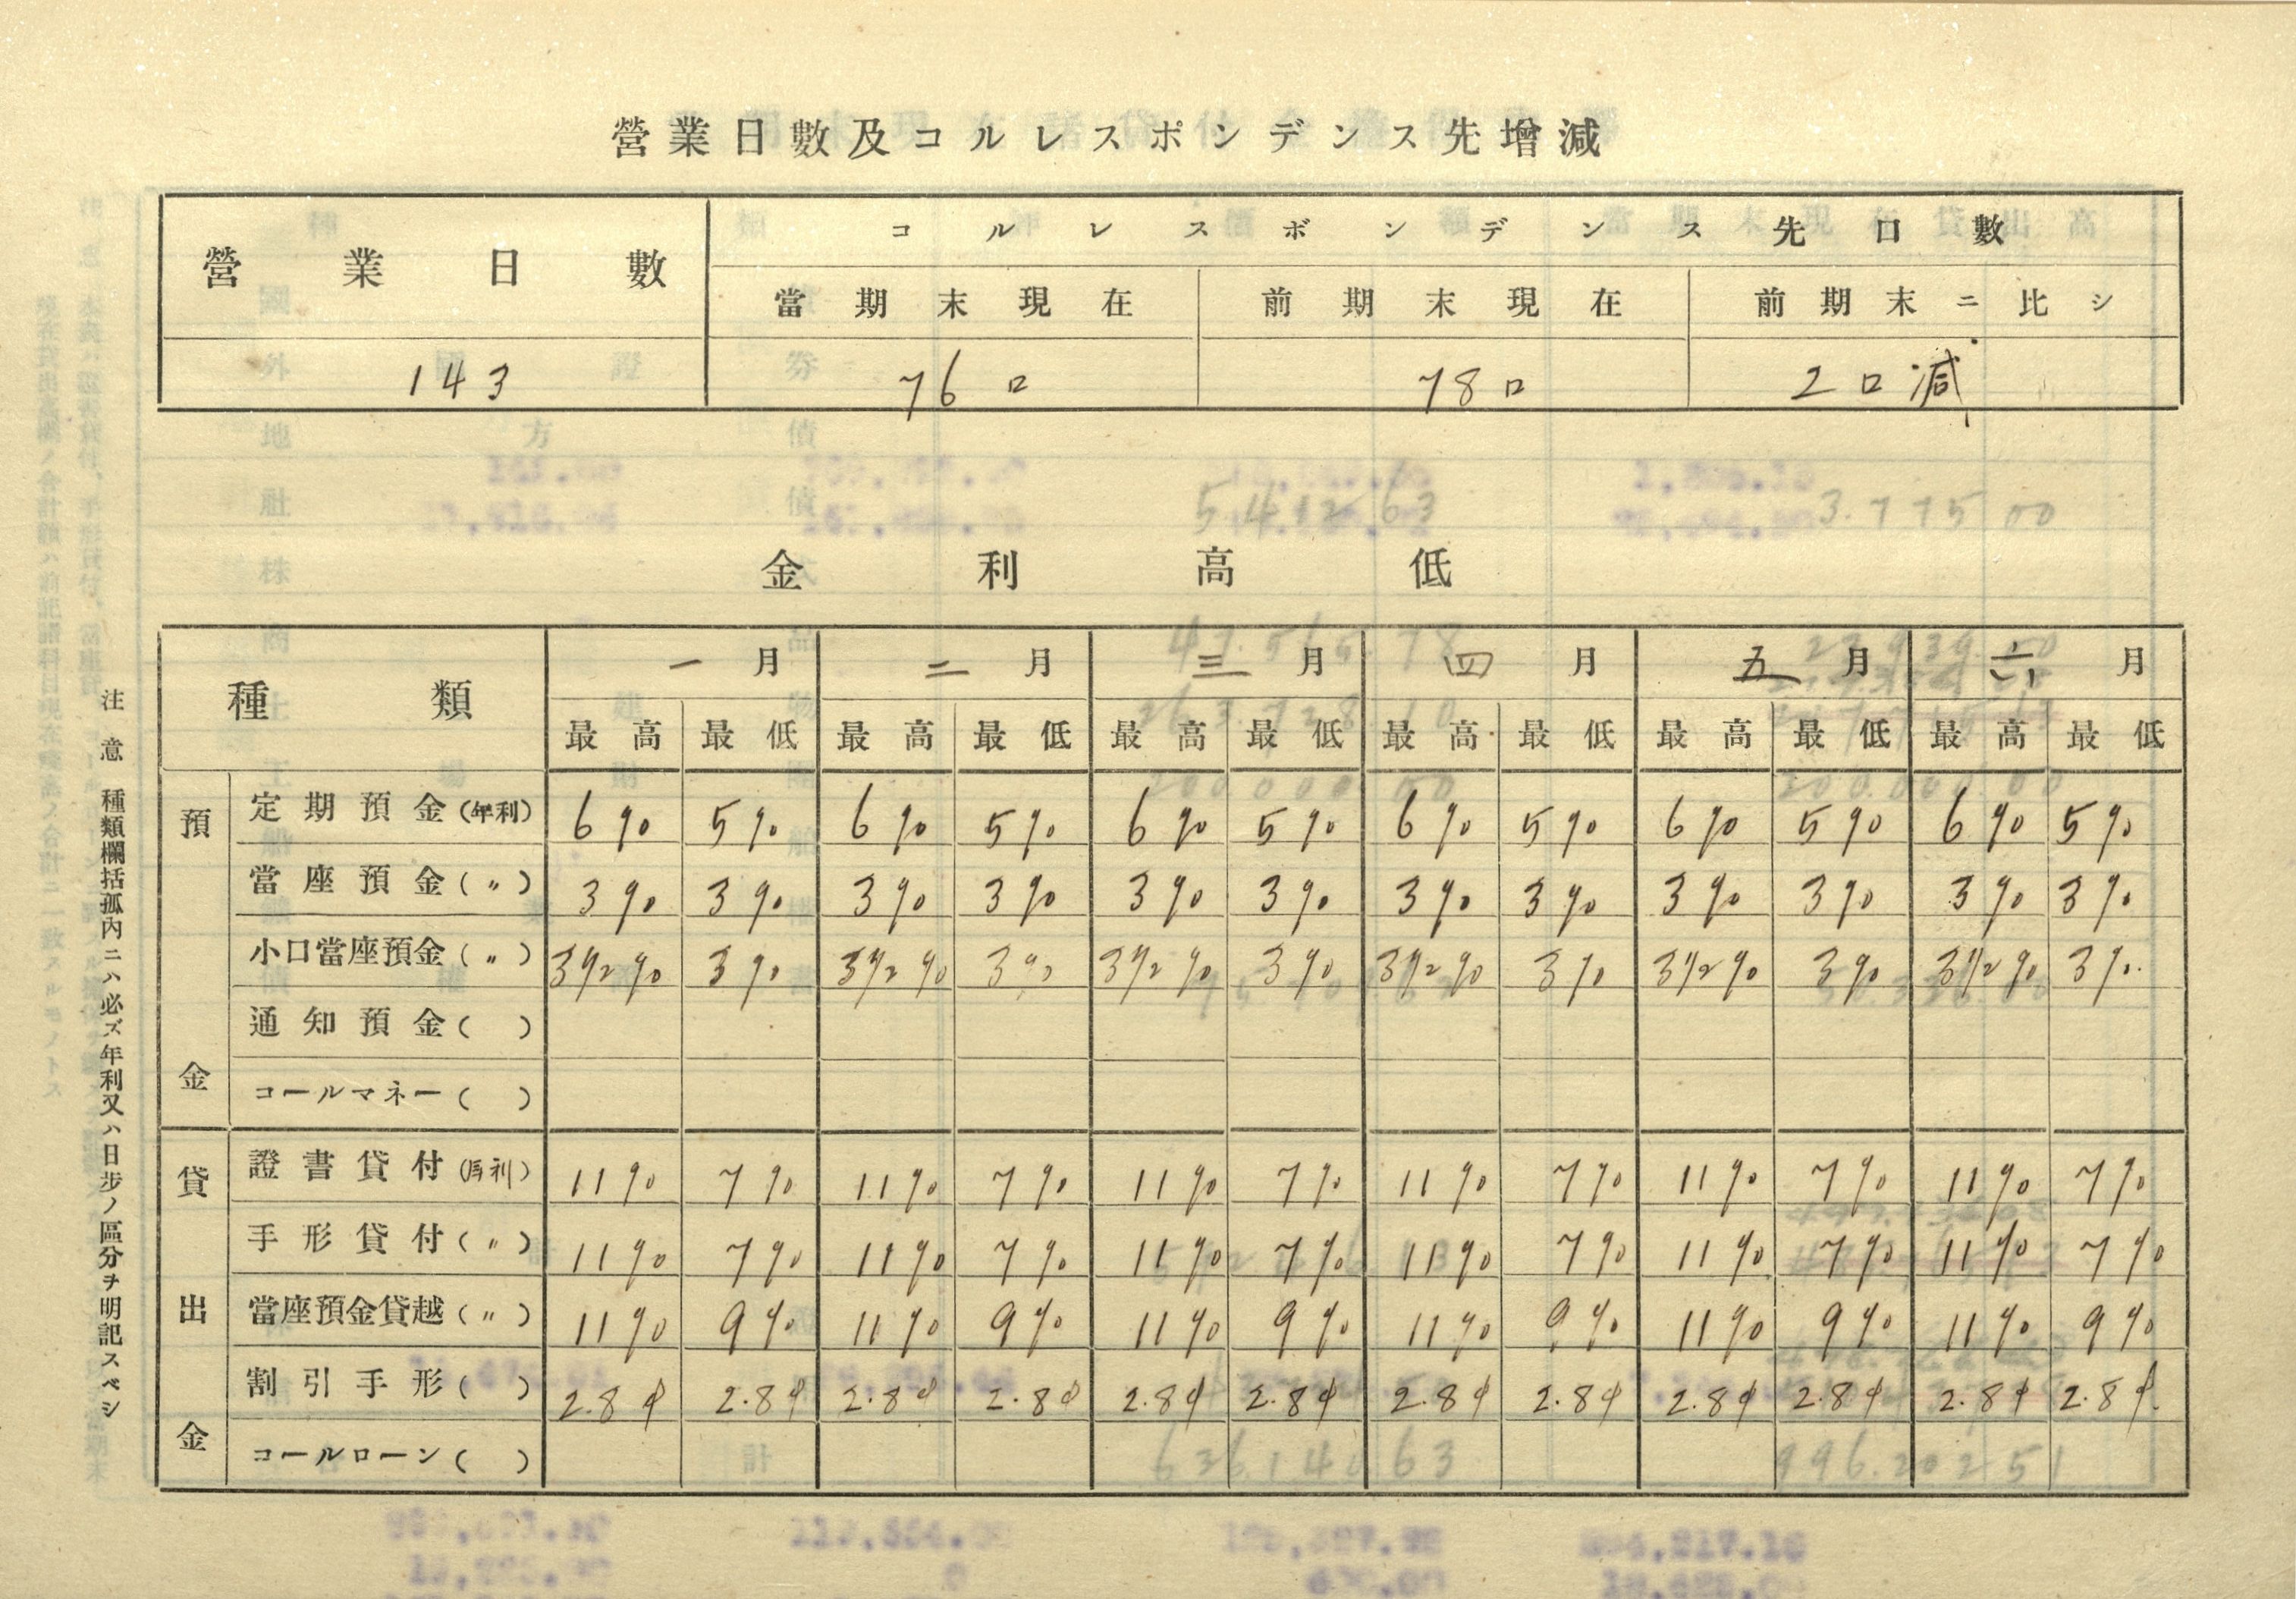 營業日數及コルレスポンデンス先增減
營業日數 コルレスポンデンス先口數
當期末現在 前期末現在 前期末ニ比シ
143 76口 78口 2口減
金利高低
種類 一月 二月 三月 四月 五月 六月
最高 最低 最高 最低 最高 最低 最高 最低 最高 最低 最高 最低
預金
定期預金(年利) 6% 5% 6% 5% 6% 5% 6% 5% 6% 5% 6% 5%
當座預金(〃) 3% 3% 3% 3% 3% 3% 3% 3% 3% 3% 3% 3%
小口當座預金(〃) 3½% 3% 3½% 3% 3½% 3% 3½% 3% 3½% 3% 3½% 3%
通知預金( )
コールマネー( )
貸出金
證書貸付(年利) 11% 7% 11% 7% 11% 7% 11% 7% 11% 7% 11% 7%
手形貸付(〃) 11% 7% 11% 7% 11% 7% 11% 7% 11% 7% 11% 7%
當座預金貸越(〃) 11% 9% 11% 9% 11% 9% 11% 9% 11% 9% 11% 9%
割引手形( ) 2.8¢ 2.8¢ 2.8¢ 2.8¢ 2.8¢ 2.8¢ 2.8¢ 2.8¢ 2.8¢ 2.8¢ 2.8¢ 2.8¢
コールローン( )
注意 種類欄括孤內ニハ必ズ年利又ハ日步ノ區分ヲ明記スベシ